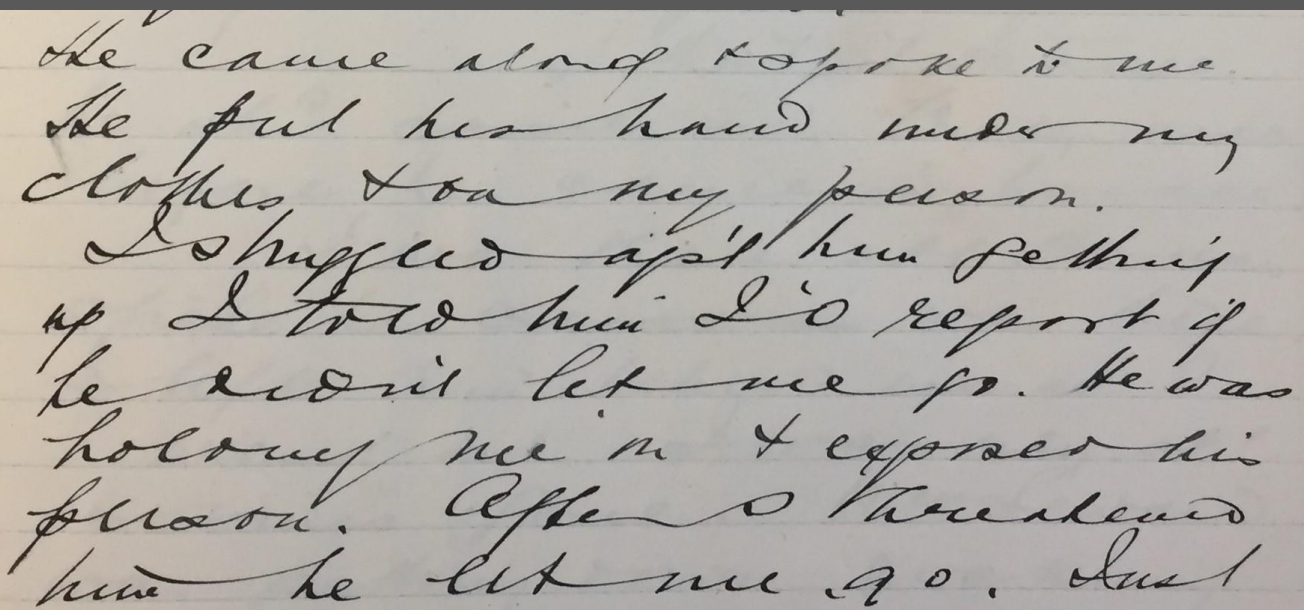 He came along & spoke to me
He put his hand under my
clothes & on my person.
I struggled agst him getting
up I told him I'd report if
he didn't let me go. He was
holding me in & exposed his
person. After I threatened
him he let me go. Just